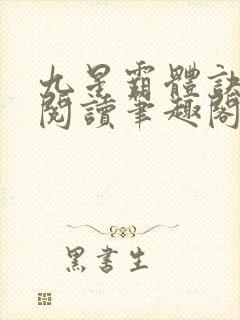 九星霸體訣
閱讀筆趣閣
黑書生